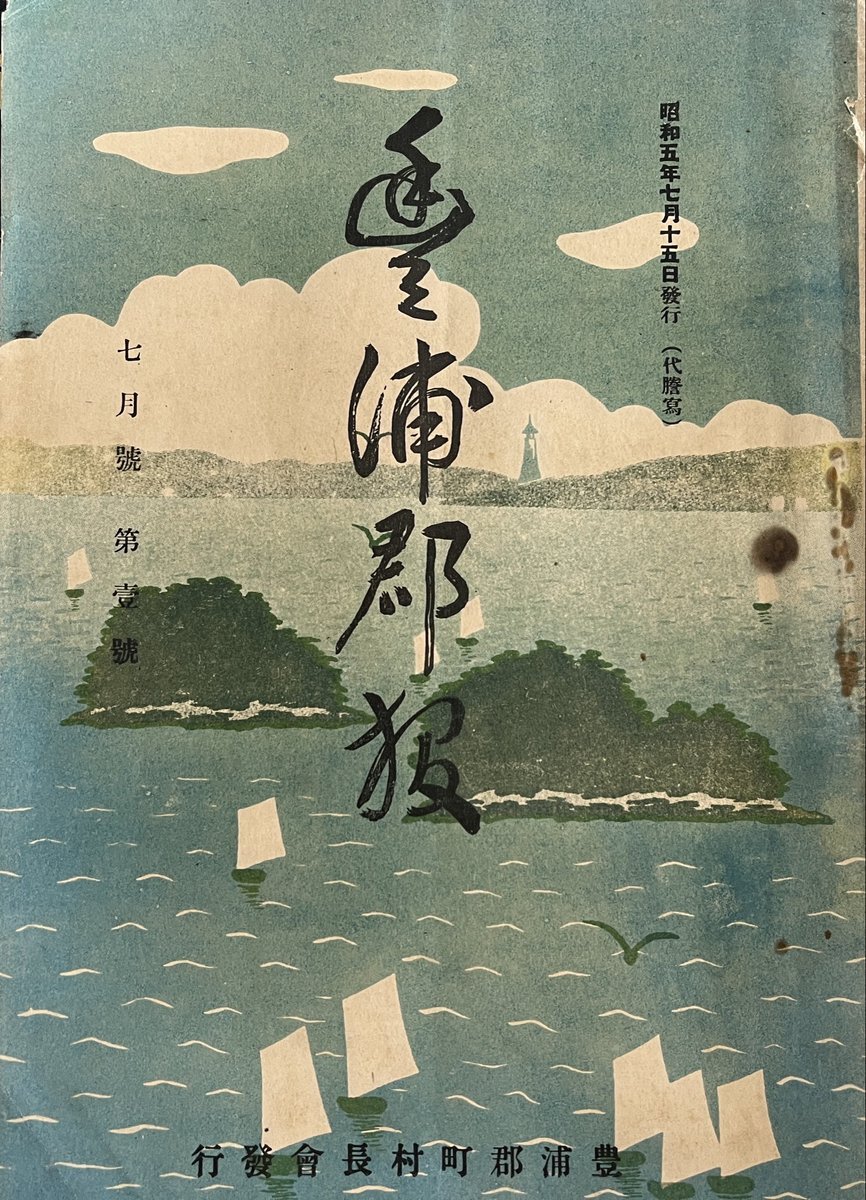 昭和五年七月十五日發行（代謄寫）
豊浦郡報
七月號 第壹號
豊浦郡町村長會發行